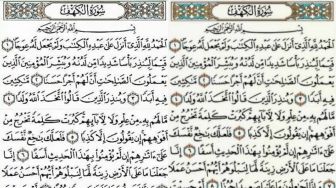 سُورَةُ الكَهْفِ
بِسْمِ ٱللَّهِ ٱلرَّحْمَٰنِ ٱلرَّحِيمِ
ٱلْحَمْدُ لِلَّهِ ٱلَّذِىٓ أَنزَلَ عَلَىٰ عَبْدِهِ ٱلْكِتَٰبَ وَلَمْ يَجْعَل لَّهُۥ عِوَجَاۜ ١
قَيِّمًا لِّيُنذِرَ بَأْسًا شَدِيدًا مِّن لَّدُنْهُ وَيُبَشِّرَ ٱلْمُؤْمِنِينَ ٱلَّذِينَ
يَعْمَلُونَ ٱلصَّٰلِحَٰتِ أَنَّ لَهُمْ أَجْرًا حَسَنًا ٢ مَّٰكِثِينَ
فِيهِ أَبَدًا ٣ وَيُنذِرَ ٱلَّذِينَ قَالُوا۟ ٱتَّخَذَ ٱللَّهُ وَلَدًا ٤
مَّا لَهُم بِهِۦ مِنْ عِلْمٍ وَلَا لِـَٔابَآئِهِمْ ۚ كَبُرَتْ كَلِمَةً تَخْرُجُ مِنْ
أَفْوَٰهِهِمْ ۚ إِن يَقُولُونَ إِلَّا كَذِبًا ٥ فَلَعَلَّكَ بَٰخِعٌ نَّفْسَكَ
عَلَىٰٓ ءَاثَٰرِهِمْ إِن لَّمْ يُؤْمِنُوا۟ بِهَٰذَا ٱلْحَدِيثِ أَسَفًا ٦ إِنَّا
جَعَلْنَا مَا عَلَى ٱلْأَرْضِ زِينَةً لَّهَا لِنَبْلُوَهُمْ أَيُّهُمْ أَحْسَنُ عَمَلًا
سُورَةُ الكَهْفِ
بِسْمِ ٱللَّهِ ٱلرَّحْمَٰنِ ٱلرَّحِيمِ
ٱلْحَمْدُ لِلَّهِ ٱلَّذِىٓ أَنزَلَ عَلَىٰ عَبْدِهِ ٱلْكِتَٰبَ وَلَمْ يَجْعَل لَّهُۥ عِوَجَاۜ ١
قَيِّمًا لِّيُنذِرَ بَأْسًا شَدِيدًا مِّن لَّدُنْهُ وَيُبَشِّرَ ٱلْمُؤْمِنِينَ ٱلَّذِينَ
يَعْمَلُونَ ٱلصَّٰلِحَٰتِ أَنَّ لَهُمْ أَجْرًا حَسَنًا ٢ مَّٰكِثِينَ
فِيهِ أَبَدًا ٣ وَيُنذِرَ ٱلَّذِينَ قَالُوا۟ ٱتَّخَذَ ٱللَّهُ وَلَدًا ٤
مَّا لَهُم بِهِۦ مِنْ عِلْمٍ وَلَا لِـَٔابَآئِهِمْ ۚ كَبُرَتْ كَلِمَةً تَخْرُجُ مِنْ
أَفْوَٰهِهِمْ ۚ إِن يَقُولُونَ إِلَّا كَذِبًا ٥ فَلَعَلَّكَ بَٰخِعٌ نَّفْسَكَ
عَلَىٰٓ ءَاثَٰرِهِمْ إِن لَّمْ يُؤْمِنُوا۟ بِهَٰذَا ٱلْحَدِيثِ أَسَفًا ٦ إِنَّا
جَعَلْنَا مَا عَلَى ٱلْأَرْضِ زِينَةً لَّهَا لِنَبْلُوَهُمْ أَيُّهُمْ أَحْسَنُ عَمَلًا